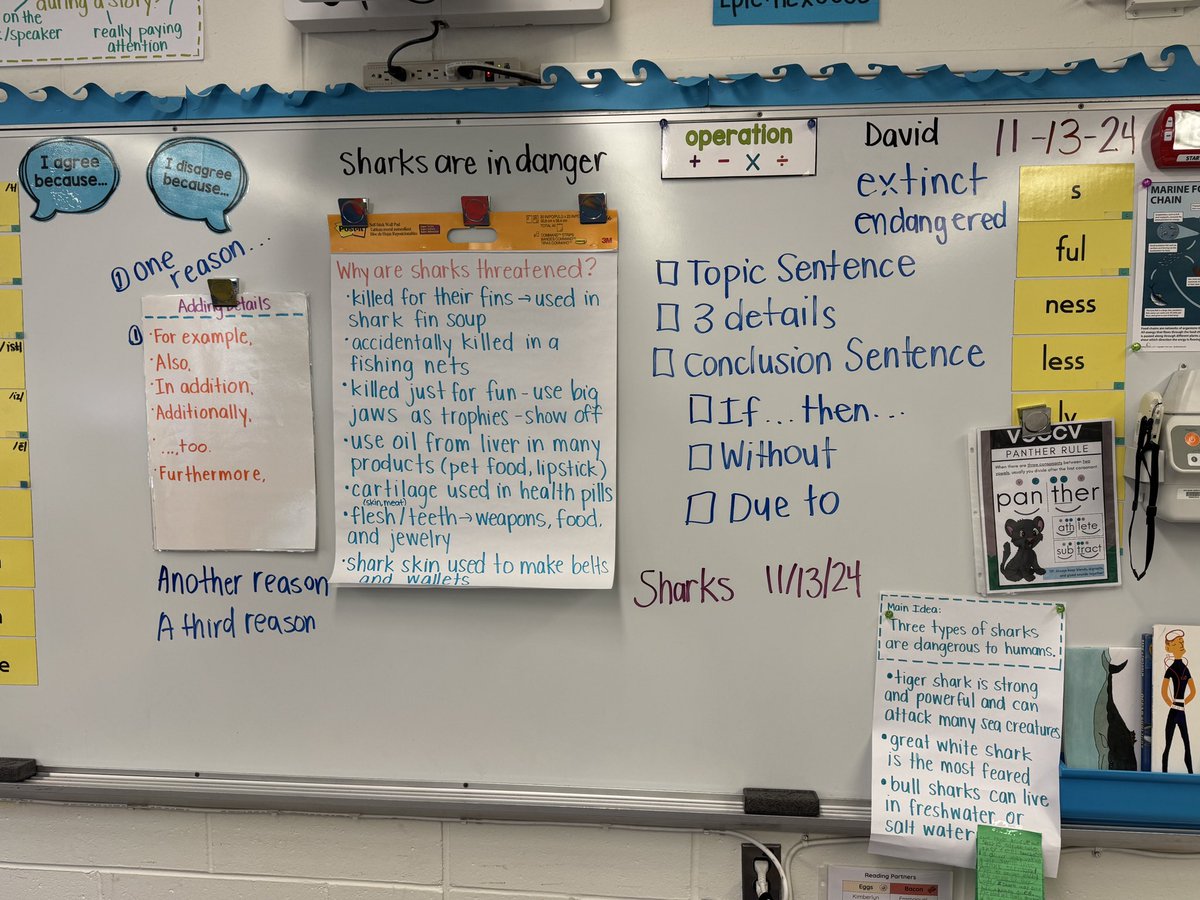 during a story?
on the
/speaker
really paying
attention
I agree
because...
I disagree
because...
Sharks are in danger
operation
+ - x ÷
David
11-13-24
extinct
endangered
① One
reason...
Adding Details
①
·For example,
·Also,
·In addition,
·Additionally,
...,too.
·Furthermore,
Another reason
A third reason
Post-it
3M
Why are sharks threatened?
·killed for their fins→used in
shark fin soup
·accidentally killed in a
fishing nets
·killed just for fun - use big
jaws as trophies - show off
·use oil from liver in many
products (pet food, lipstick)
·cartilage used in health pills
(skin, meat)
·flesh/teeth→weapons, food,
and jewelry
·shark skin used to make belts
and wallets
☐ Topic Sentence
☐ 3 details
☐ Conclusion Sentence
☐ If...then...
☐ Without
☐ Due to
Sharks 11/13/24
s
ful
ness
less
ly
/ish/
/iz/
/ĕl/
e
START
MARINE FO
CHAIN
VCCCV
PANTHER RULE
When there are three consonants between two
vowels, usually you divide after the first consonant
pan ther
ath lete
sub tract
Main Idea:
Three types of sharks
are dangerous to humans.
•tiger shark is strong
and powerful and can
attack many sea creatures
•great white shark
is the most feared
•bull sharks can live
in freshwater or
salt water
Reading Partners
Eggs
Bacon
Kimberlyn